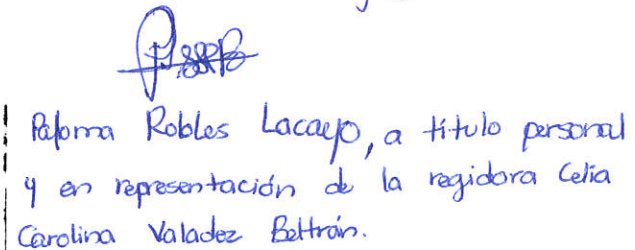 Paloma Robles Lacayo, a título personal
y en representación de la regidora Celia
Carolina Valadez Beltrán.